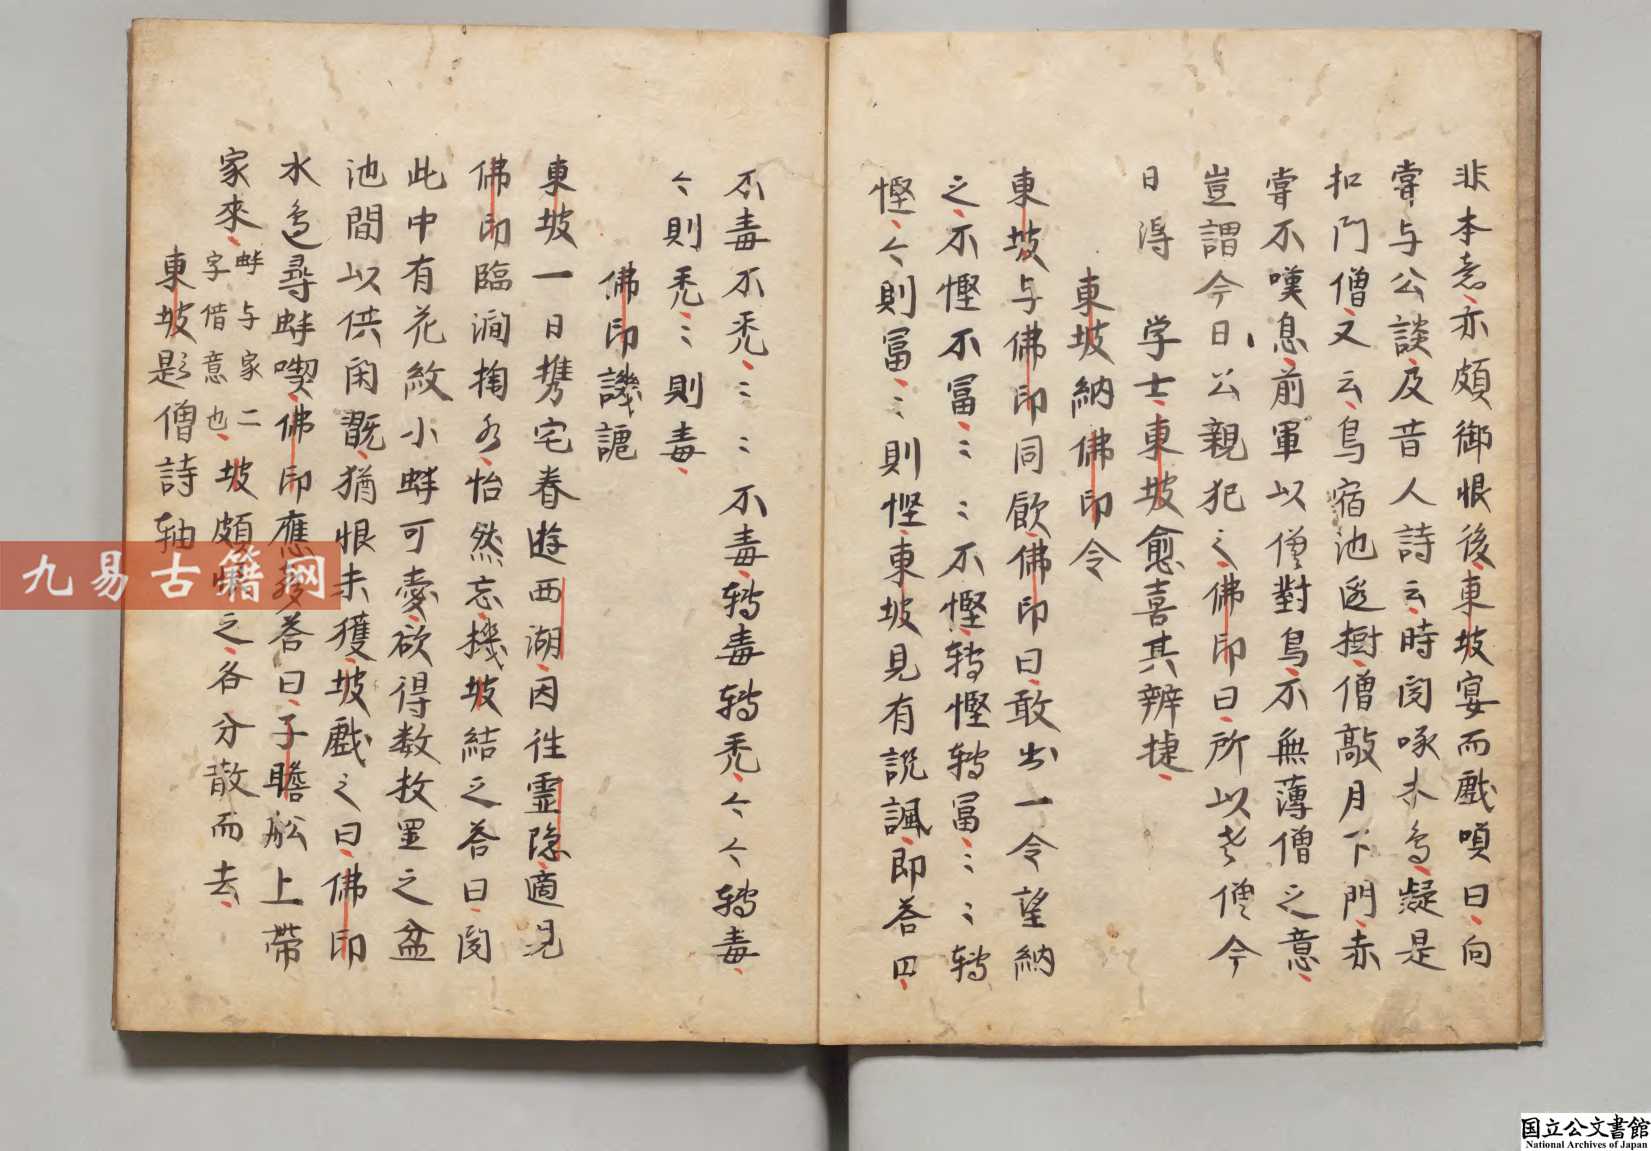 非本意亦頗御恨後東坡宴而戲嗔曰向
嘗与公談及昔人詩云時闻啄木鳥凝是
扣门僧又云鳥宿池邊樹僧敲月下門亦
嘗不嘆息前軍以僧對鳥不無薄僧之意
豈謂今日公親犯之佛印曰所以老僧今
日得　学士東坡愈喜其辨捷
東坡納佛印令
東坡与佛印同飲佛印曰敢出一令望納
之不慳不冨〻〻不慳轉慳轉冨〻〻轉
慳人則冨〻則慳東坡見有說諷即荅曰
不毒不禿〻〻不毒轉毒轉禿人人轉毒
人則禿〻則毒
佛印譏謔
東坡一日攜宅眷遊西湖因徃靈隐適見
佛印臨澗掬水怡然忘機坡結之荅曰闻
此中有花紋小蚌可愛欲得数枚置之盆
池間以供闲翫猶恨未獲坡戲之曰佛印
水邊尋蚌喫佛印應聲荅曰子瞻舩上帶
家來蚌与家二字借意也坡頗之各分散而去
東坡題僧詩轴
九易古籍网
国立公文書館
National Archives of Japan